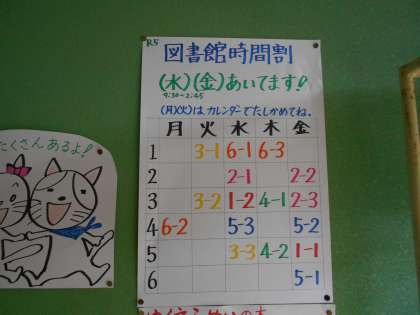 R5
図書館時間割
(水)(金)あいてます!
9:30~2:45
(月)(火)は、カレンダーでたしかめてね。
月 火 水 木 金
1 3-1 6-1 6-3
2 2-1 2-2
3 3-2 1-2 4-1 2-3
4 6-2 5-3 5-2
5 3-3 4-2 1-1
6 5-1
たくさんあるよ!